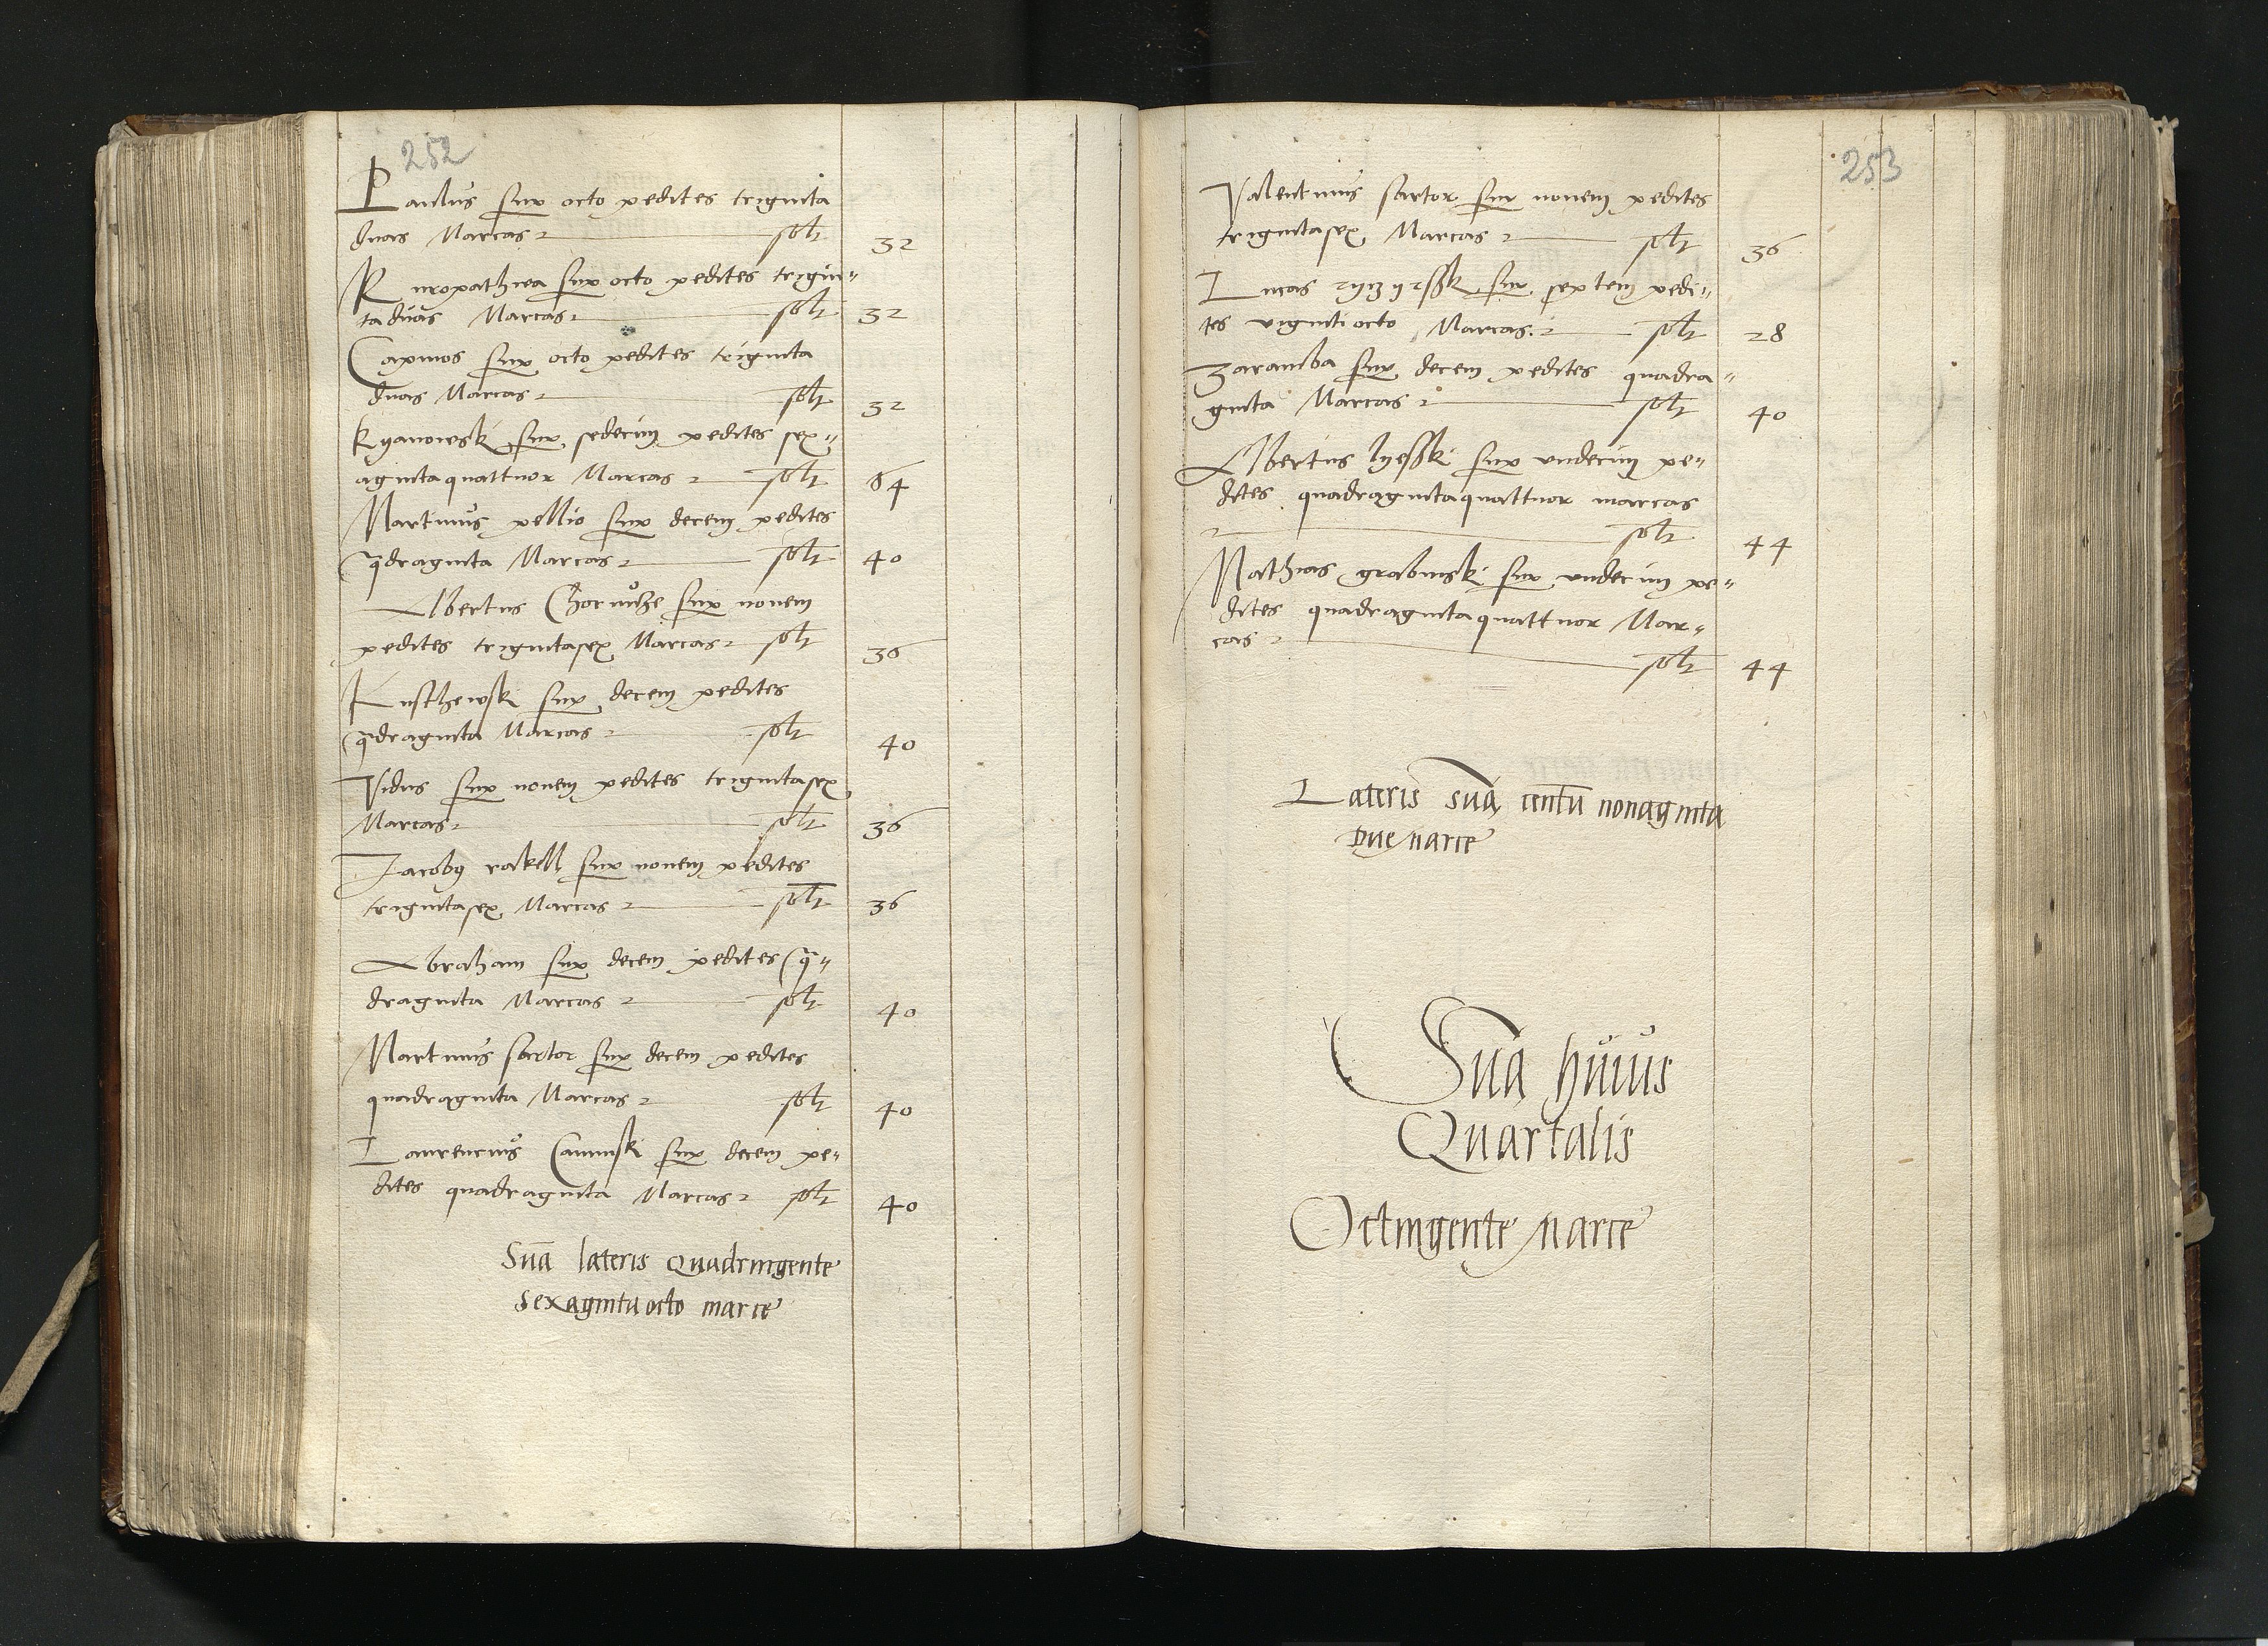 252
Paulus sup octo pedites triginta
duas Marcas solt 32
Kuropathwa sup octo pedites trigin„
ta duas Marcas solt 32
Capinos sup octo pedites triginta
duas Marcas solt 32
Kyanowski sup sedecim pedites sex„
agintaquattuor Marcas solt 64
Martinus pellio sup decem pedites
qdraginta Marcas solt 40
Albertus sup novem
pedites trigintasex Marcas solt 36
Kusthewski sup decem pedites
qdraginta Marcas solt 40
Vidus sup novem pedites trigintasex
Marcas solt 36
Jacobus rakell sup novem pedites
trigintasex Marcas solt 36
Abraham sup decem pedites q„
draginta Marcas solt 40
Martinus sartor sup decem pedites
quadraginta Marcas solt 40
Laurencius Caminski sup decem pe„
dites quadraginta Marcas solt 40
Sua lateris Quadringente
sexagintaocto marce
253
Valentinus sartor sup novem pedites
trigintasex Marcas solt 36
Lucas sup septem pedi„
tes vigintiocto Marcas solt 28
Zaramba sup decem pedites quadra„
ginta Marcas solt 40
Albertus lyesski sup undecim pe„
dites quadragintaquattuor marcas
solt 44
Mathias grabinski sup undecim pe„
dites quadragintaquattuor Mar„
cas solt 44
Lateris sua centu nonaginta
Due marce
Sua huius
Quartalis
Octingente marce